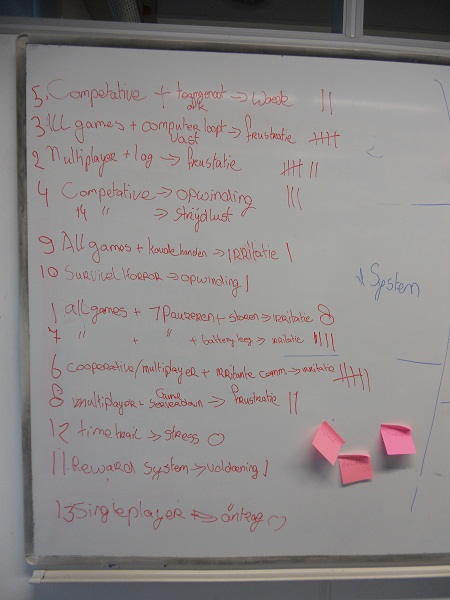 5. Competative + teamgenoot afk → Woede ||
3 All games + computer loopt vast → frustratie 卌
2 Multiplayer + lag → frustatie 卌 ||
4 Competative → opwinding |||
14 " → strijdlust
9 All games + koude handen → irritatie |
10 Survival Horror → opwinding |
1 all games + 7 Pauzeren + storen → irritatie 8
7 " + " + battery leeg → irritatie ||||
6 cooperative/multiplayer + irritante comm → irritatie 卌 ||
8 multiplayer + Game Serverdown → frustratie ||
12 time trail → stress 0
11. Reward System → voldoening |
13 Singleplayer →
System